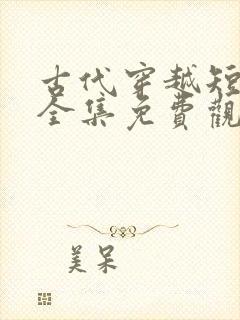 古代穿越短
全集免費觀
美呆